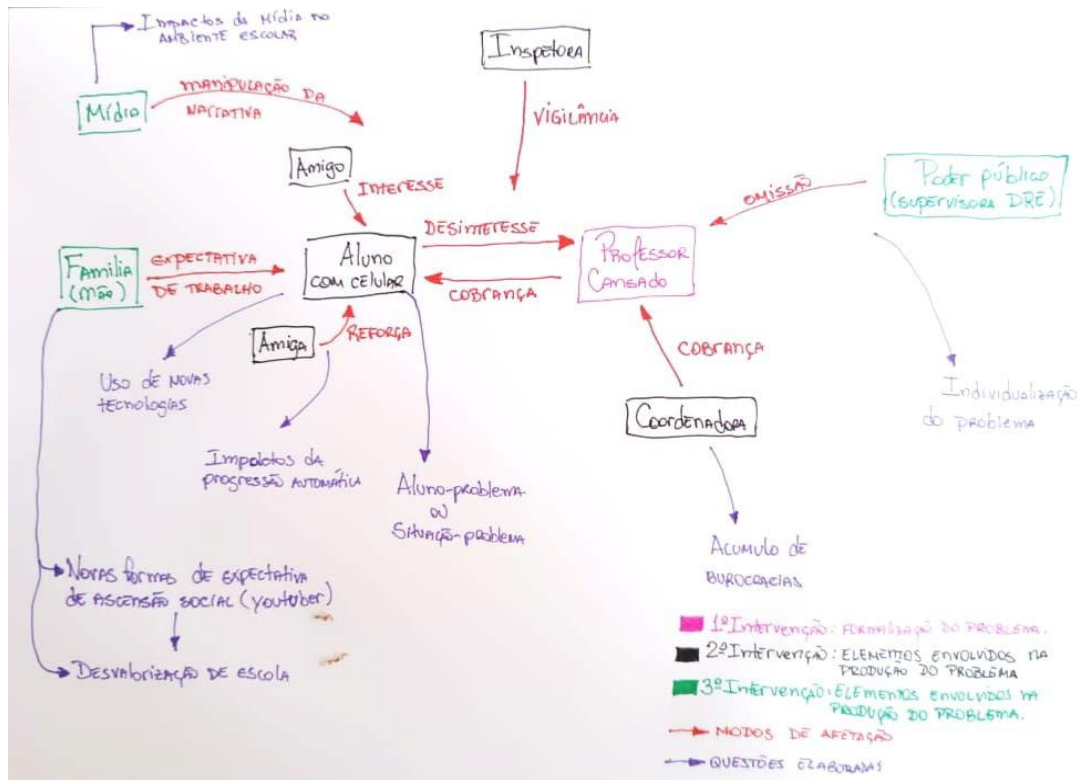 Impactos da Mídia no
AMBIENTE ESCOLAR
Mídia
MANIPULAÇÃO DA
NARRATIVA
Inspetora
VIGILÂNCIA
Amigo
INTERESSE
Poder público
(SUPERVISORA DRE)
OMISSÃO
Família
(mãe)
EXPECTATIVA
DE TRABALHO
Aluno
COM CELULAR
DESINTERESSE
COBRANÇA
Professor
Cansado
Amiga
REFORÇA
Uso de NOVAS
tecnologias
COBRANÇA
Individualização
do problema
Coordenadora
Impactos da
progressão AUTOMÁTICA
Aluno-problema
ou
Situação-problema
Acumulo de
BUROCRACIAS
Novas formas de EXPECTATIVA
DE ASCENSÃO SOCIAL (youtuber)
Desvalorização DE escola
1ª Intervenção: FORMALIZAÇÃO DO PROBLEMA.
2ª Intervenção: ELEMENTOS ENVOLVIDOS NA
PRODUÇÃO DO PROBLEMA
3ª Intervenção: ELEMENTOS ENVOLVIDOS NA
PRODUÇÃO DO PROBLEMA.
MODOS DE AFETAÇÃO
QUESTÕES ELABORADAS